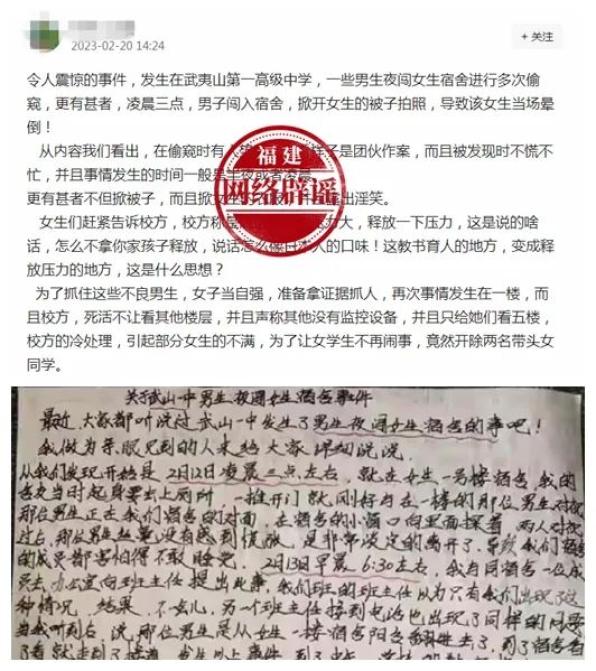 2023-02-20 14:24
+ 关注
令人震惊的事件，发生在武夷山第一高级中学，一些男生夜闯女生宿舍进行多次偷
窥，更有甚者，凌晨三点，男子闯入宿舍，掀开女生的被子拍照，导致该女生当场晕
倒！
从内容我们看出，在偷窥时有 子是团伙作案，而且被发现时不慌不
忙，并且事情发生的时间一般是半夜或者凌晨
更有甚者不但掀被子，而且掀女 出淫笑。
福建
网络辟谣
女生们赶紧告诉校方，校方称 大，释放一下压力，这是说的啥
话，怎么不拿你家孩子释放，说话怎么 人的口味！这教书育人的地方，变成释
放压力的地方，这是什么思想？
为了抓住这些不良男生，女子当自强，准备拿证据抓人，再次事情发生在一楼，而
且校方，死活不让看其他楼层，并且声称其他没有监控设备，并且只给她们看五楼，
校方的冷处理，引起部分女生的不满，为了让女学生不再闹事，竟然开除两名带头女
同学。
关于武山一中男生夜闯女生宿舍事件
最近，大家都听说过武山一中发生了男生夜闯女生宿舍的事吧！
我做为亲眼见到的人来给大家详细说说
从我们发现开始是2月12日凌晨三点左右，就在女生一号楼宿舍，我的
舍友当时起身要出上厕所，一推开门就刚好与在一楼的那位男生对视
那位男生正在我们宿舍的对面，在宿舍的小窗口向里面探着，两人对视
过后，那位男生丝毫没有感到慌张，是非常淡定的离开了，导致我们宿舍
的成员都害怕得不敢睡觉。2月13日早晨6:30左右，我与同宿舍一位成
员去办公室向班主任提出此事，我们班的班主任以为只有我们出现了这
种情况，结果，不一会儿，另一个班主任接到电话也出现了同样的问题
当我听到后，说那位男生是从女生一楼宿舍阳台 进去了，到了宿舍看